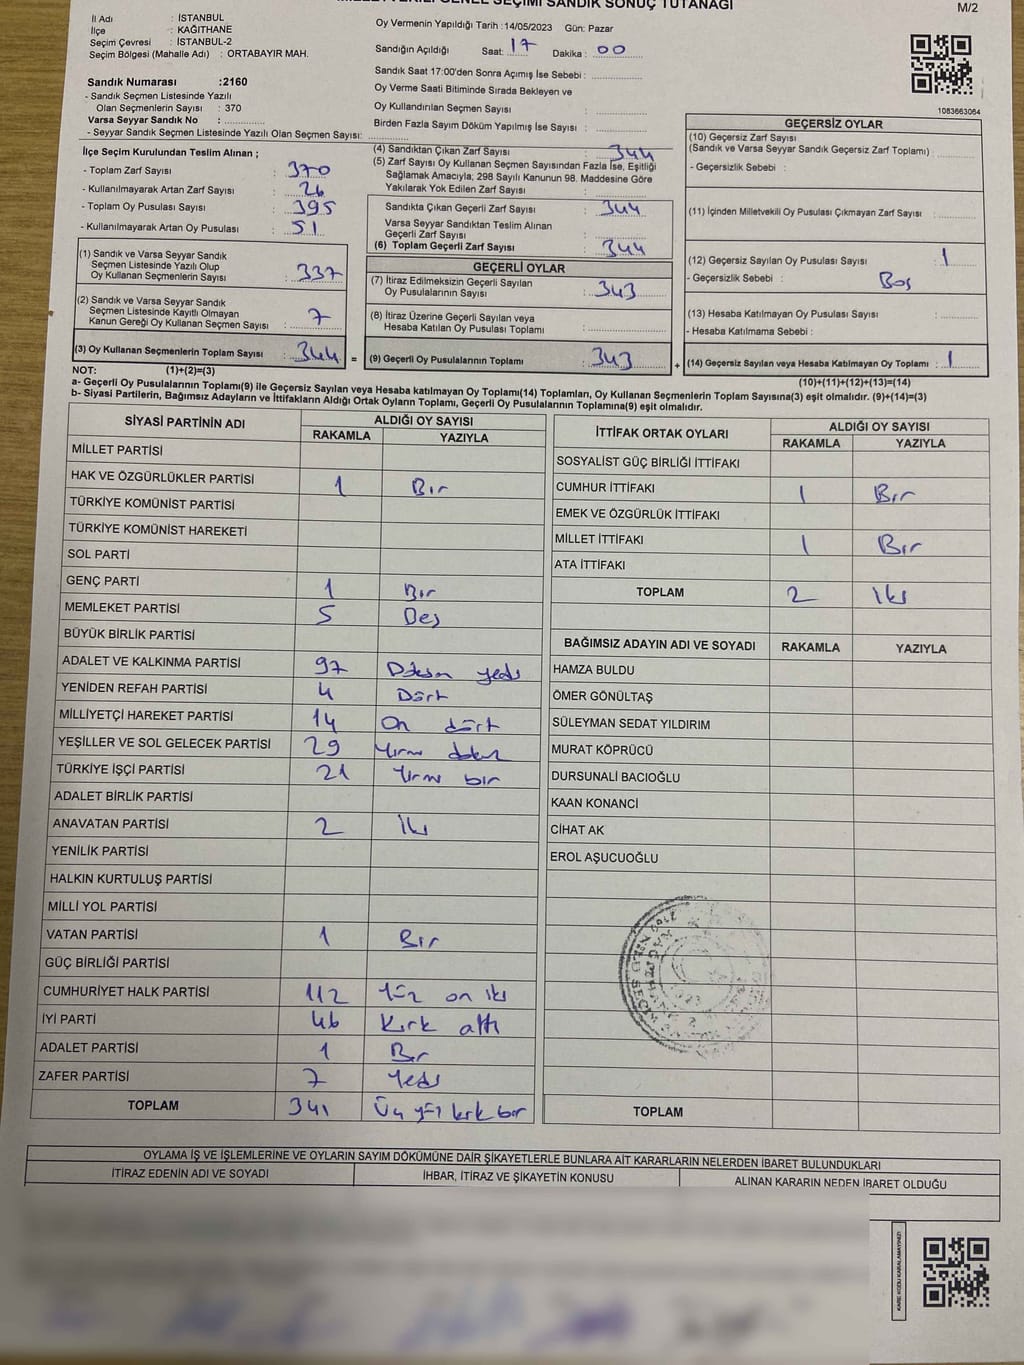 MİLLETVEKİLİ GENEL SEÇİMİ SANDIK SONUÇ TUTANAĞI
M/2
İl Adı : İSTANBUL
İlçe : KAĞITHANE
Seçim Çevresi : İSTANBUL-2
Seçim Bölgesi (Mahalle Adı) : ORTABAYIR MAH.
Oy Vermenin Yapıldığı Tarih :14/05/2023 Gün: Pazar
Sandığın Açıldığı Saat: 17 Dakika : 00
Sandık Saat 17:00'den Sonra Açımış İse Sebebi :
Oy Verme Saati Bitiminde Sırada Bekleyen ve
Oy Kullandırılan Seçmen Sayısı :
Birden Fazla Sayım Döküm Yapılmış İse Sayısı :
1083663064
Sandık Numarası :2160
- Sandık Seçmen Listesinde Yazılı
Olan Seçmenlerin Sayısı : 370
Varsa Seyyar Sandık No :
- Seyyar Sandık Seçmen Listesinde Yazılı Olan Seçmen Sayısı:
İlçe Seçim Kurulundan Teslim Alınan ;
- Toplam Zarf Sayısı : 370
- Kullanılmayarak Artan Zarf Sayısı : 26
- Toplam Oy Pusulası Sayısı : 395
- Kullanılmayarak Artan Oy Pusulası : 51
(1) Sandık ve Varsa Seyyar Sandık
Seçmen Listesinde Yazılı Olup
Oy Kullanan Seçmenlerin Sayısı : 337
(2) Sandık ve Varsa Seyyar Sandık
Seçmen Listesinde Kayıtlı Olmayan
Kanun Gereği Oy Kullanan Seçmen Sayısı : 7
(3) Oy Kullanan Seçmenlerin Toplam Sayısı : 344 =
(4) Sandıktan Çıkan Zarf Sayısı : 344
(5) Zarf Sayısı Oy Kullanan Seçmen Sayısından Fazla İse, Eşitliği
Sağlamak Amacıyla; 298 Sayılı Kanunun 98. Maddesine Göre
Yakılarak Yok Edilen Zarf Sayısı :
Sandıkta Çıkan Geçerli Zarf Sayısı : 344
Varsa Seyyar Sandıktan Teslim Alınan
Geçerli Zarf Sayısı :
(6) Toplam Geçerli Zarf Sayısı : 344
GEÇERLİ OYLAR
(7) İtiraz Edilmeksizin Geçerli Sayılan
Oy Pusulalarının Sayısı : 343
(8) İtiraz Üzerine Geçerli Sayılan veya
Hesaba Katılan Oy Pusulası Toplamı :
(9) Geçerli Oy Pusulalarının Toplamı : 343 +
GEÇERSİZ OYLAR
(10) Geçersiz Zarf Sayısı
(Sandık ve Varsa Seyyar Sandık Geçersiz Zarf Toplamı) :
- Geçersizlik Sebebi :
(11) İçinden Milletvekili Oy Pusulası Çıkmayan Zarf Sayısı :
(12) Geçersiz Sayılan Oy Pusulası Sayısı : 1
- Geçersizlik Sebebi : Boş
(13) Hesaba Katılmayan Oy Pusulası Sayısı :
- Hesaba Katılmama Sebebi :
(14) Geçersiz Sayılan veya Hesaba Katılmayan Oy Toplamı : 1
NOT: (1)+(2)=(3) (10)+(11)+(12)+(13)=(14)
a- Geçerli Oy Pusulalarının Toplamı(9) ile Geçersiz Sayılan veya Hesaba katılmayan Oy Toplamı(14) Toplamları, Oy Kullanan Seçmenlerin Toplam Sayısına(3) eşit olmalıdır. (9)+(14)=(3)
b- Siyasi Partilerin, Bağımsız Adayların ve İttifakların Aldığı Ortak Oyların Toplamı, Geçerli Oy Pusulalarının Toplamına(9) eşit olmalıdır.
SİYASİ PARTİNİN ADI ALDIĞI OY SAYISI
RAKAMLA YAZIYLA
MİLLET PARTİSİ
HAK VE ÖZGÜRLÜKLER PARTİSİ 1 Bir
TÜRKİYE KOMÜNİST PARTİSİ
TÜRKİYE KOMÜNİST HAREKETİ
SOL PARTİ
GENÇ PARTİ 1 Bir
MEMLEKET PARTİSİ 5 Beş
BÜYÜK BİRLİK PARTİSİ
ADALET VE KALKINMA PARTİSİ 97 Doksan yedi
YENİDEN REFAH PARTİSİ 4 Dört
MİLLİYETÇİ HAREKET PARTİSİ 14 On dört
YEŞİLLER VE SOL GELECEK PARTİSİ 29 Yirmi dokuz
TÜRKİYE İŞÇİ PARTİSİ 21 Yirmi bir
ADALET BİRLİK PARTİSİ
ANAVATAN PARTİSİ 2 İki
YENİLİK PARTİSİ
HALKIN KURTULUŞ PARTİSİ
MİLLİ YOL PARTİSİ
VATAN PARTİSİ 1 Bir
GÜÇ BİRLİĞİ PARTİSİ
CUMHURİYET HALK PARTİSİ 112 Yüz on iki
İYİ PARTİ 46 Kırk altı
ADALET PARTİSİ 1 Bir
ZAFER PARTİSİ 7 Yedi
TOPLAM 341 Üç yüz kırk bir
İTTİFAK ORTAK OYLARI ALDIĞI OY SAYISI
RAKAMLA YAZIYLA
SOSYALİST GÜÇ BİRLİĞİ İTTİFAKI
CUMHUR İTTİFAKI 1 Bir
EMEK VE ÖZGÜRLÜK İTTİFAKI
MİLLET İTTİFAKI 1 Bir
ATA İTTİFAKI
TOPLAM 2 İki
BAĞIMSIZ ADAYIN ADI VE SOYADI RAKAMLA YAZIYLA
HAMZA BULDU
ÖMER GÖNÜLTAŞ
SÜLEYMAN SEDAT YILDIRIM
MURAT KÖPRÜCÜ
DURSUNALİ BACIOĞLU
KAAN KONANCİ
CİHAT AK
EROL AŞUCUOĞLU
TOPLAM
OYLAMA İŞ VE İŞLEMLERİNE VE OYLARIN SAYIM DÖKÜMÜNE DAİR ŞİKAYETLERLE BUNLARA AİT KARARLARIN NELERDEN İBARET BULUNDUKLARI
İTİRAZ EDENİN ADI VE SOYADI İHBAR, İTİRAZ VE ŞİKAYETİN KONUSU ALINAN KARARIN NEDEN İBARET OLDUĞU
KARE KODU KARALAMAYINIZ!